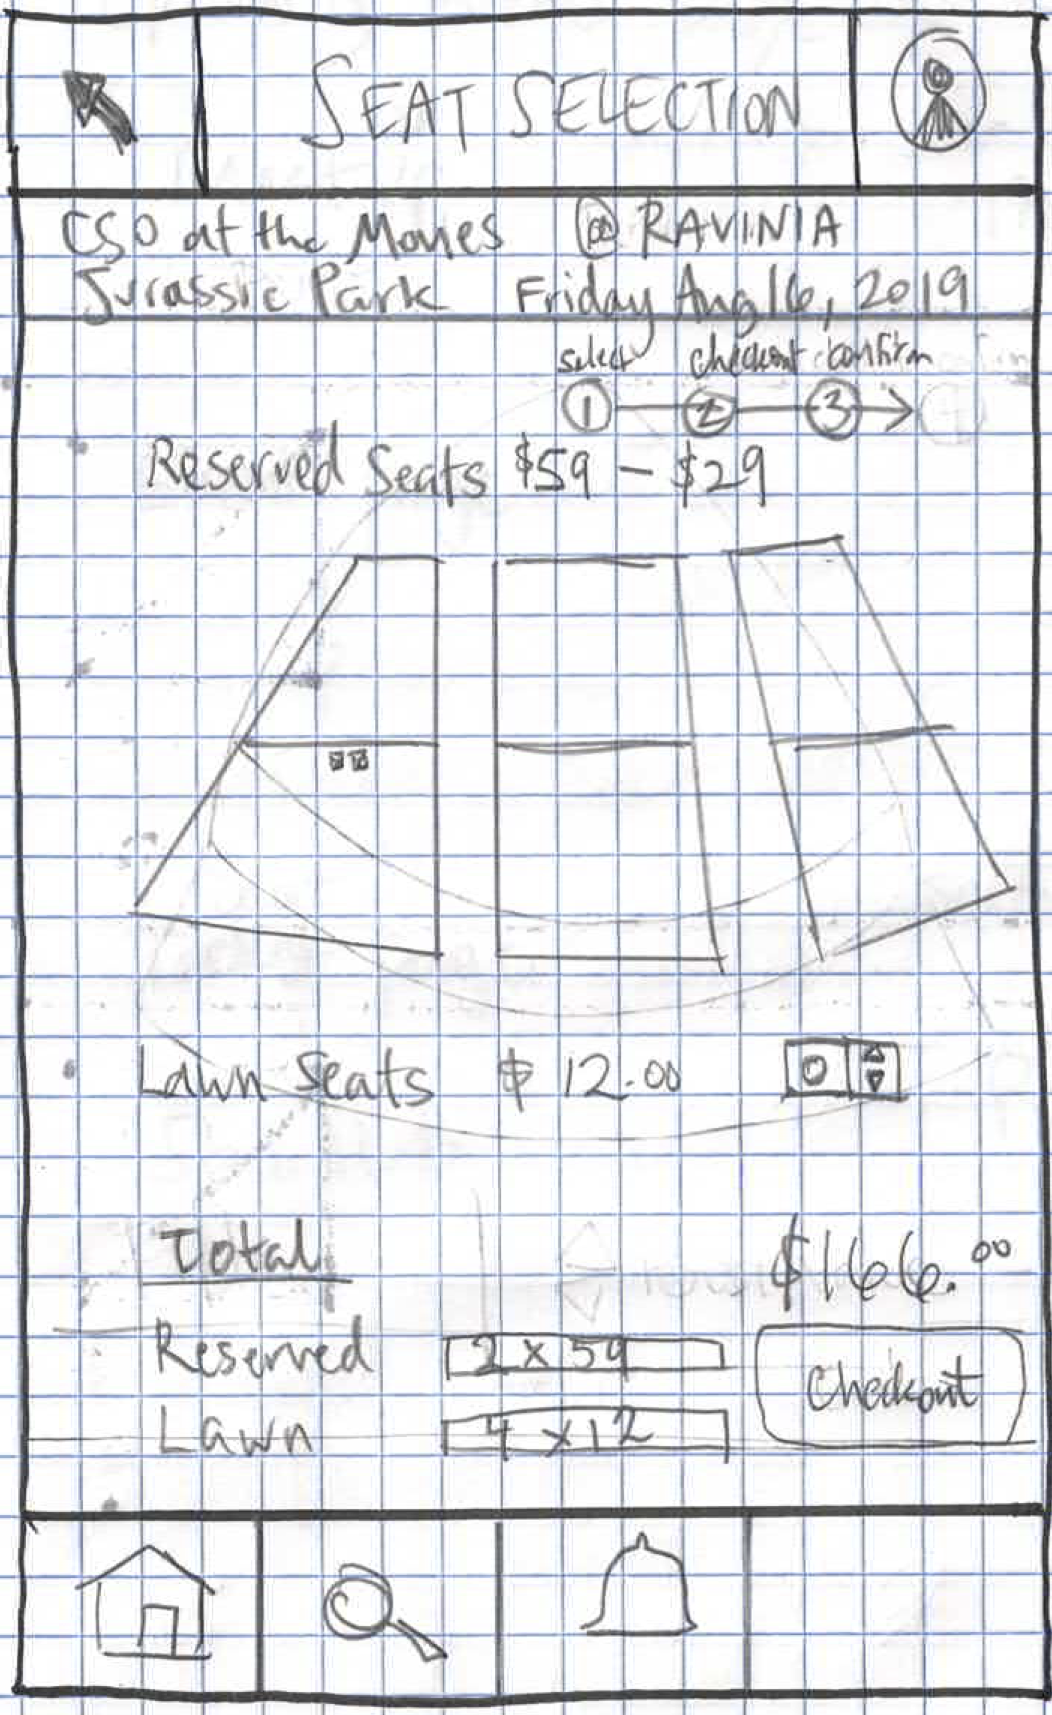 SEAT SELECTION
CSO at the Movies @ RAVINIA
Jurassic Park Friday Aug 16, 2019
select checkout confirm
1 2 3
Reserved Seats $59 - $29
Lawn Seats $ 12.00 0
Total $166.00
Reserved 2 x 59
Checkout
Lawn 4 x 12